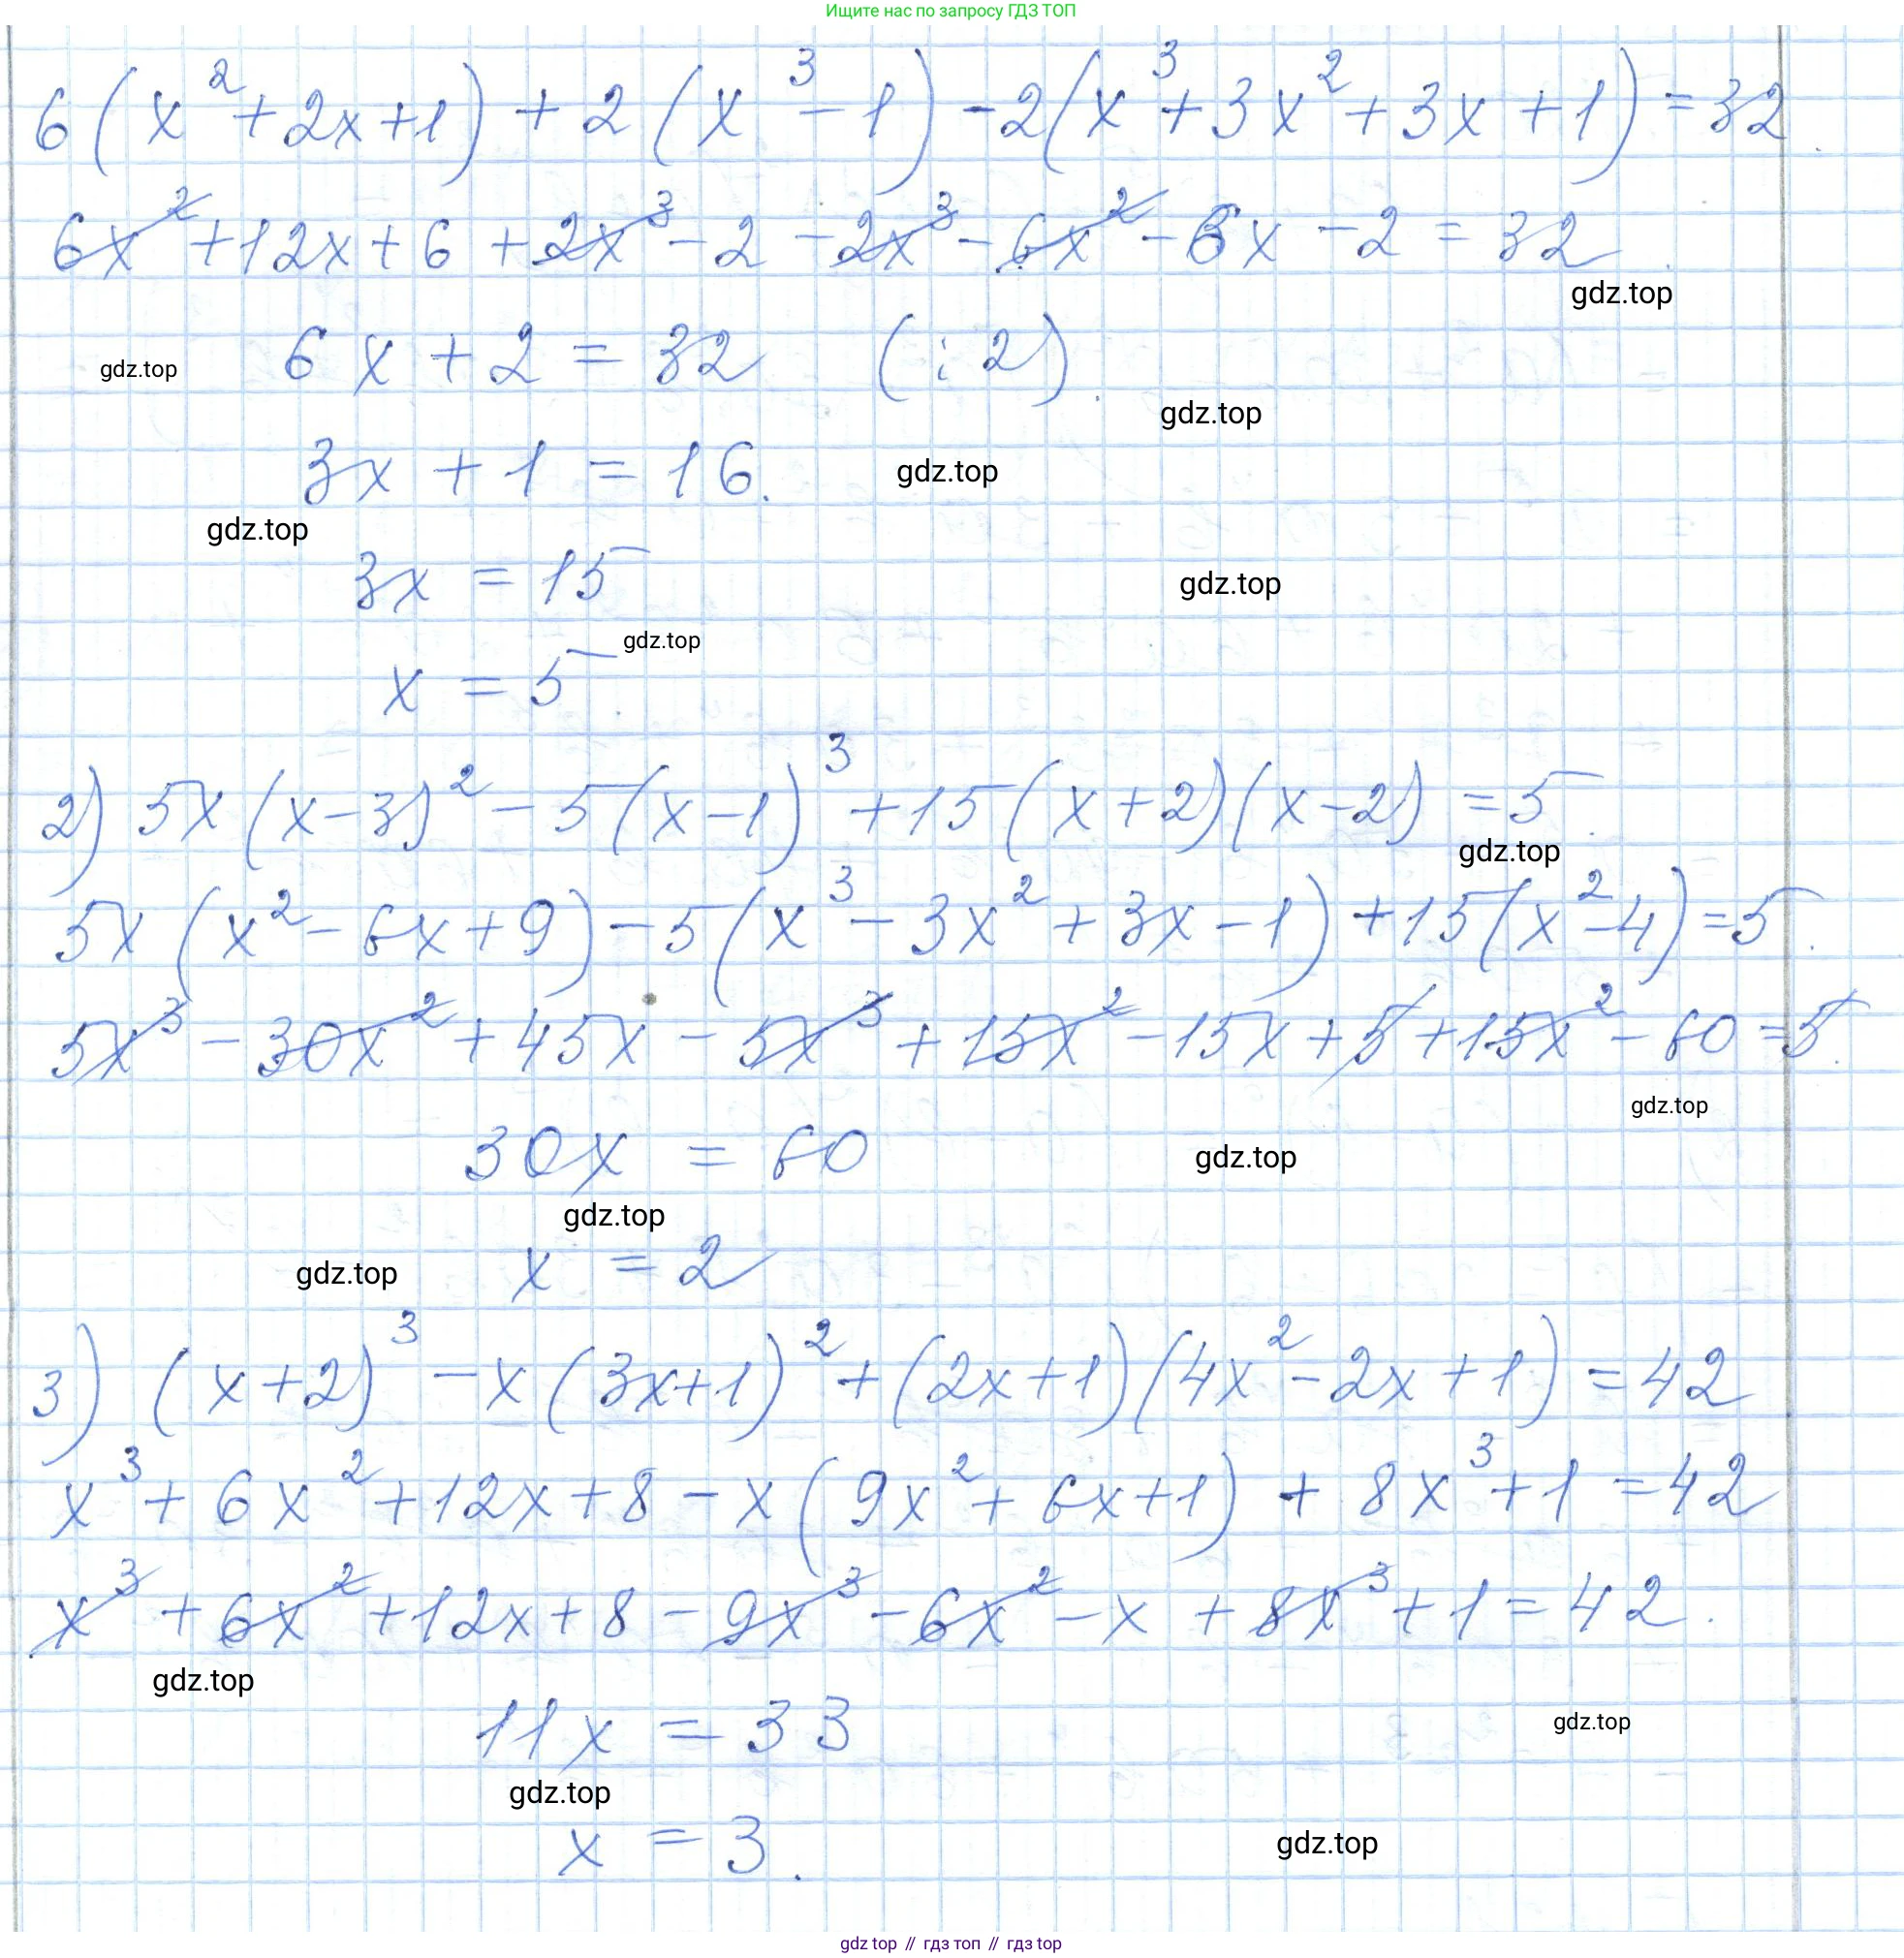 Ищите нас по запросу ГДЗ ТОП
6(x²+2x+1)+2(x³-1)-2(x³+3x²+3x+1)=32
6x²+12x+6+2x³-2-2x³-6x²-6x-2=32
gdz.top
6x+2=32 (:2)
gdz.top
gdz.top
3x+1=16.
gdz.top
gdz.top
3x=15
gdz.top
gdz.top
x=5
2) 5x(x-3)²-5(x-1)³+15(x+2)(x-2)=5
gdz.top
5x(x²-6x+9)-5(x³-3x²+3x-1)+15(x²-4)=5
5x³-30x²+45x-5x³+15x²-15x+5+15x²-60=5.
gdz.top
30x=60
gdz.top
gdz.top
gdz.top
x=2
3) (x+2)³-x(3x+1)²+(2x+1)(4x²-2x+1)=42
x³+6x²+12x+8-x(9x²+6x+1)+8x³+1=42
x³+6x²+12x+8-9x³-6x²-x+8x³+1=42.
gdz.top
11x=33
gdz.top
gdz.top
x=3.
gdz.top
gdz top // гдз топ // гдз top